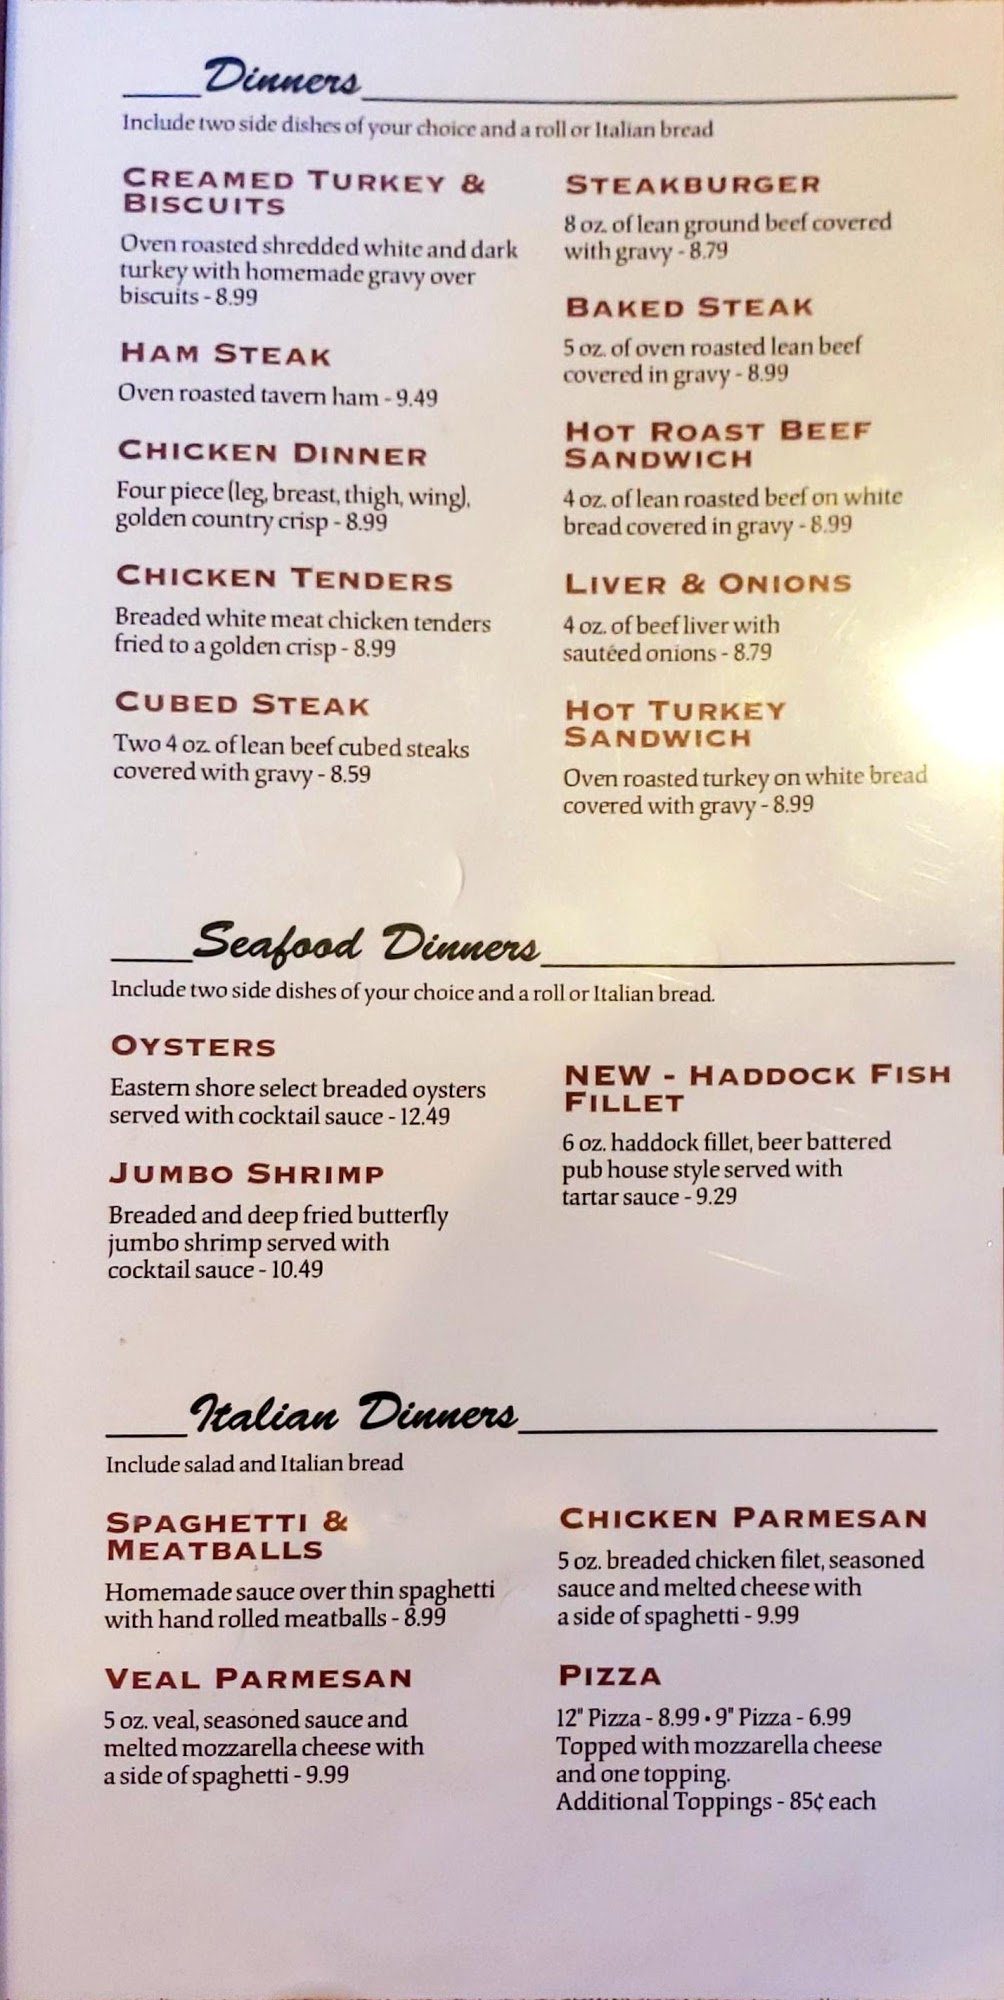 Dinners
Include two side dishes of your choice and a roll or Italian bread
CREAMED TURKEY &
BISCUITS
Oven roasted shredded white and dark
turkey with homemade gravy over
biscuits - 8.99
HAM STEAK
Oven roasted tavern ham - 9.49
CHICKEN DINNER
Four piece (leg, breast, thigh, wing),
golden country crisp - 8.99
CHICKEN TENDERS
Breaded white meat chicken tenders
fried to a golden crisp - 8.99
CUBED STEAK
Two 4 oz. of lean beef cubed steaks
covered with gravy - 8.59
STEAKBURGER
8 oz. of lean ground beef covered
with gravy - 8.79
BAKED STEAK
5 oz. of oven roasted lean beef
covered in gravy - 8.99
HOT ROAST BEEF
SANDWICH
4 oz. of lean roasted beef on white
bread covered in gravy - 8.99
LIVER & ONIONS
4 oz. of beef liver with
sautéed onions - 8.79
HOT TURKEY
SANDWICH
Oven roasted turkey on white bread
covered with gravy - 8.99
Seafood Dinners
Include two side dishes of your choice and a roll or Italian bread.
OYSTERS
Eastern shore select breaded oysters
served with cocktail sauce - 12.49
JUMBO SHRIMP
Breaded and deep fried butterfly
jumbo shrimp served with
cocktail sauce - 10.49
NEW - HADDOCK FISH
FILLET
6 oz. haddock fillet, beer battered
pub house style served with
tartar sauce - 9.29
Italian Dinners
Include salad and Italian bread
SPAGHETTI &
MEATBALLS
Homemade sauce over thin spaghetti
with hand rolled meatballs - 8.99
VEAL PARMESAN
5 oz. veal, seasoned sauce and
melted mozzarella cheese with
a side of spaghetti - 9.99
CHICKEN PARMESAN
5 oz. breaded chicken filet, seasoned
sauce and melted cheese with
a side of spaghetti - 9.99
PIZZA
12" Pizza - 8.99 • 9" Pizza - 6.99
Topped with mozzarella cheese
and one topping.
Additional Toppings - 85¢ each